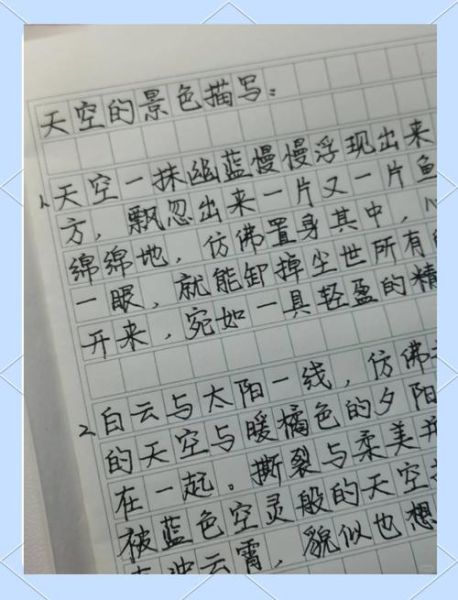 天空的景色描写:
1、天空一抹幽蓝慢慢浮现出来
方，飘忽出来一片又一片鱼
绵绵地，仿佛置身其中，心
一眼，就能卸掉尘世所有
开来，宛如一具轻盈的精
2、白云与太阳一线，仿佛
的天空与暖橘色的夕阳
在一起。撕裂与柔美并
被蓝色空灵般的天空
冲云霄，貌似也想